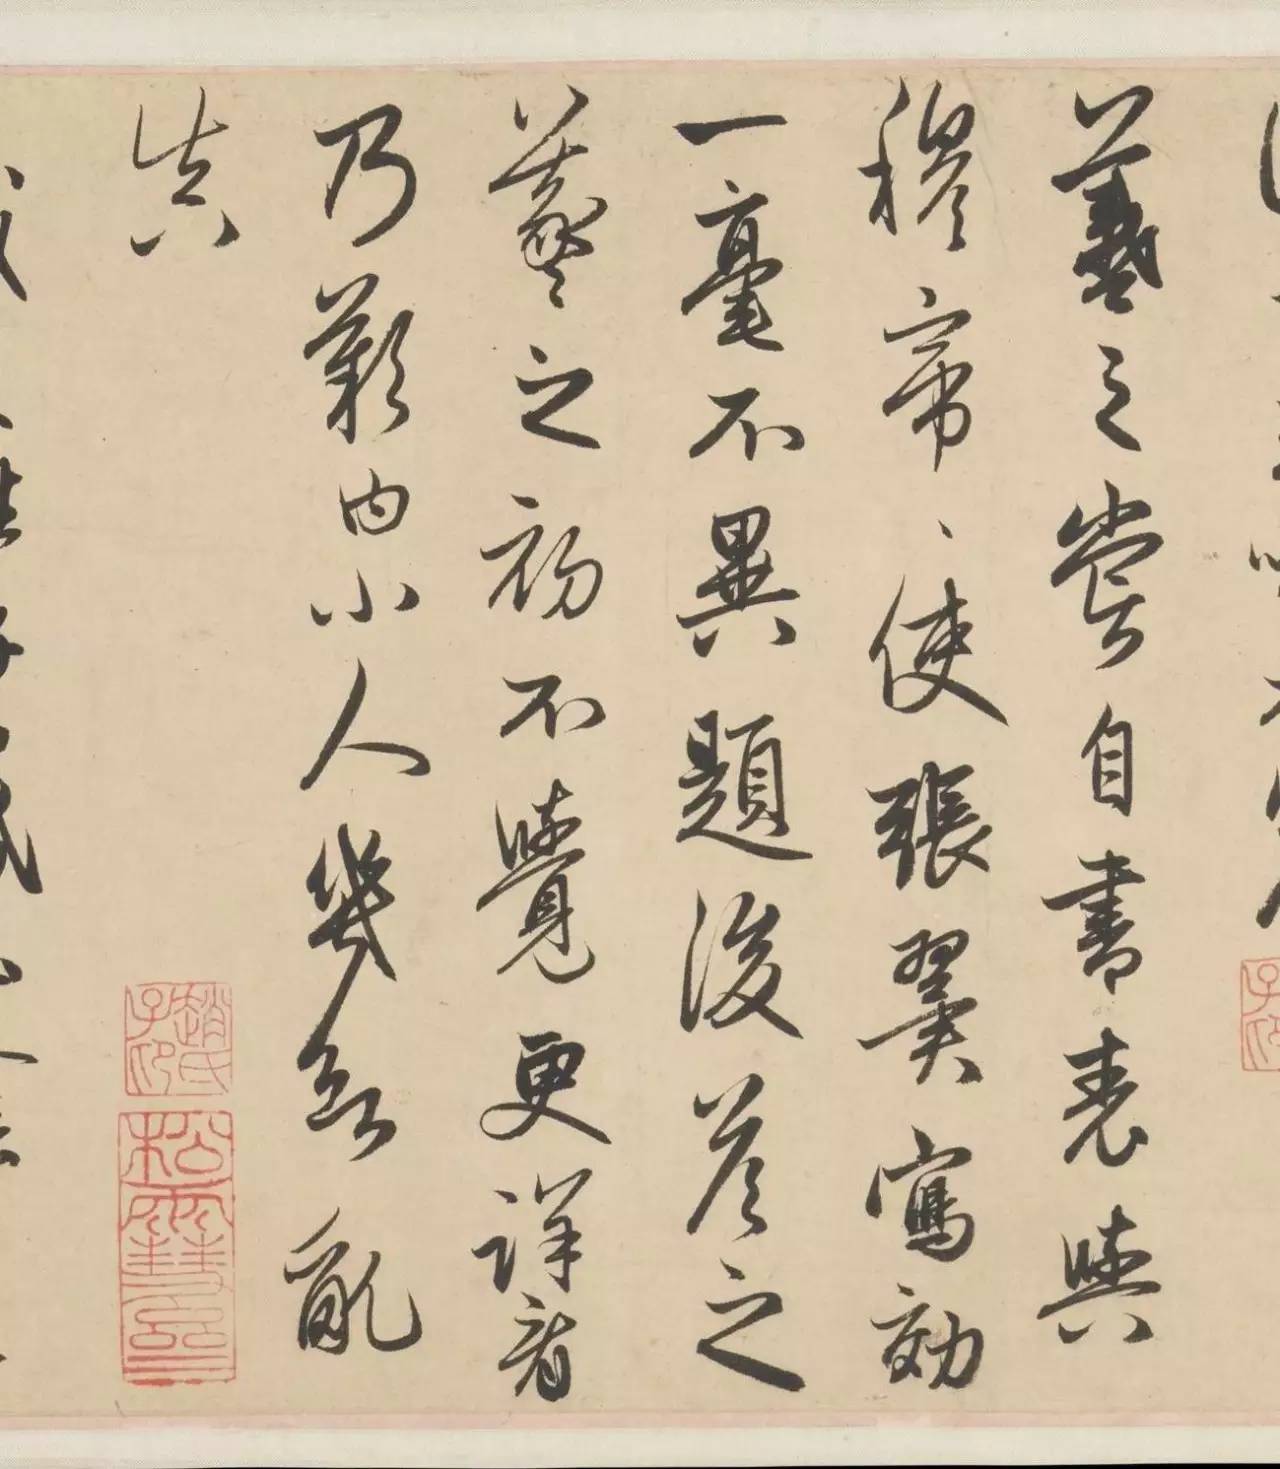 羲之甞自書表與
穆帝、使張翼寫効
一毫不異題後答之
羲之初不覺更詳看
乃歎曰小人幾欲亂
真
趙氏子昂
松雪齋